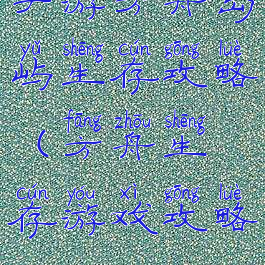 手游方舟岛
yǔ shēng cún gōng lüè
屿生存攻略
fāng zhōu shēng
（方舟生
cún yóu xì gōng lüè
存游戏攻略